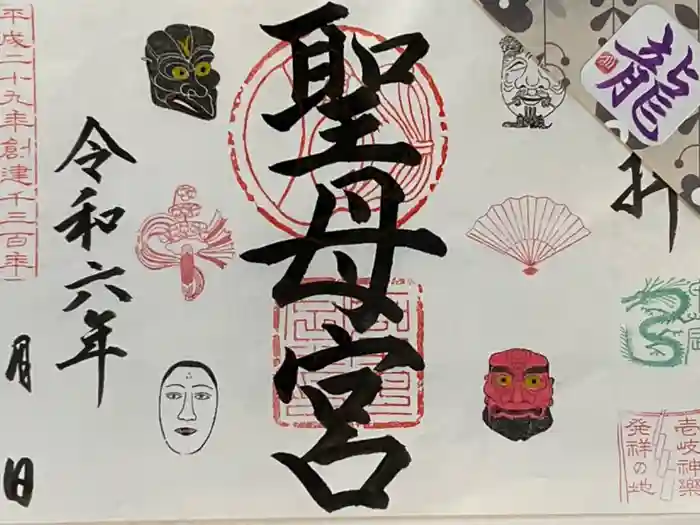 龍
壱岐神楽
発祥の地
聖母宮
令和六年
月
日
平成二十九年創建千三百年